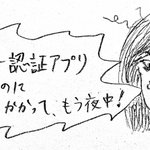 ー認証アプリ
のに
かかって、もう夜中!